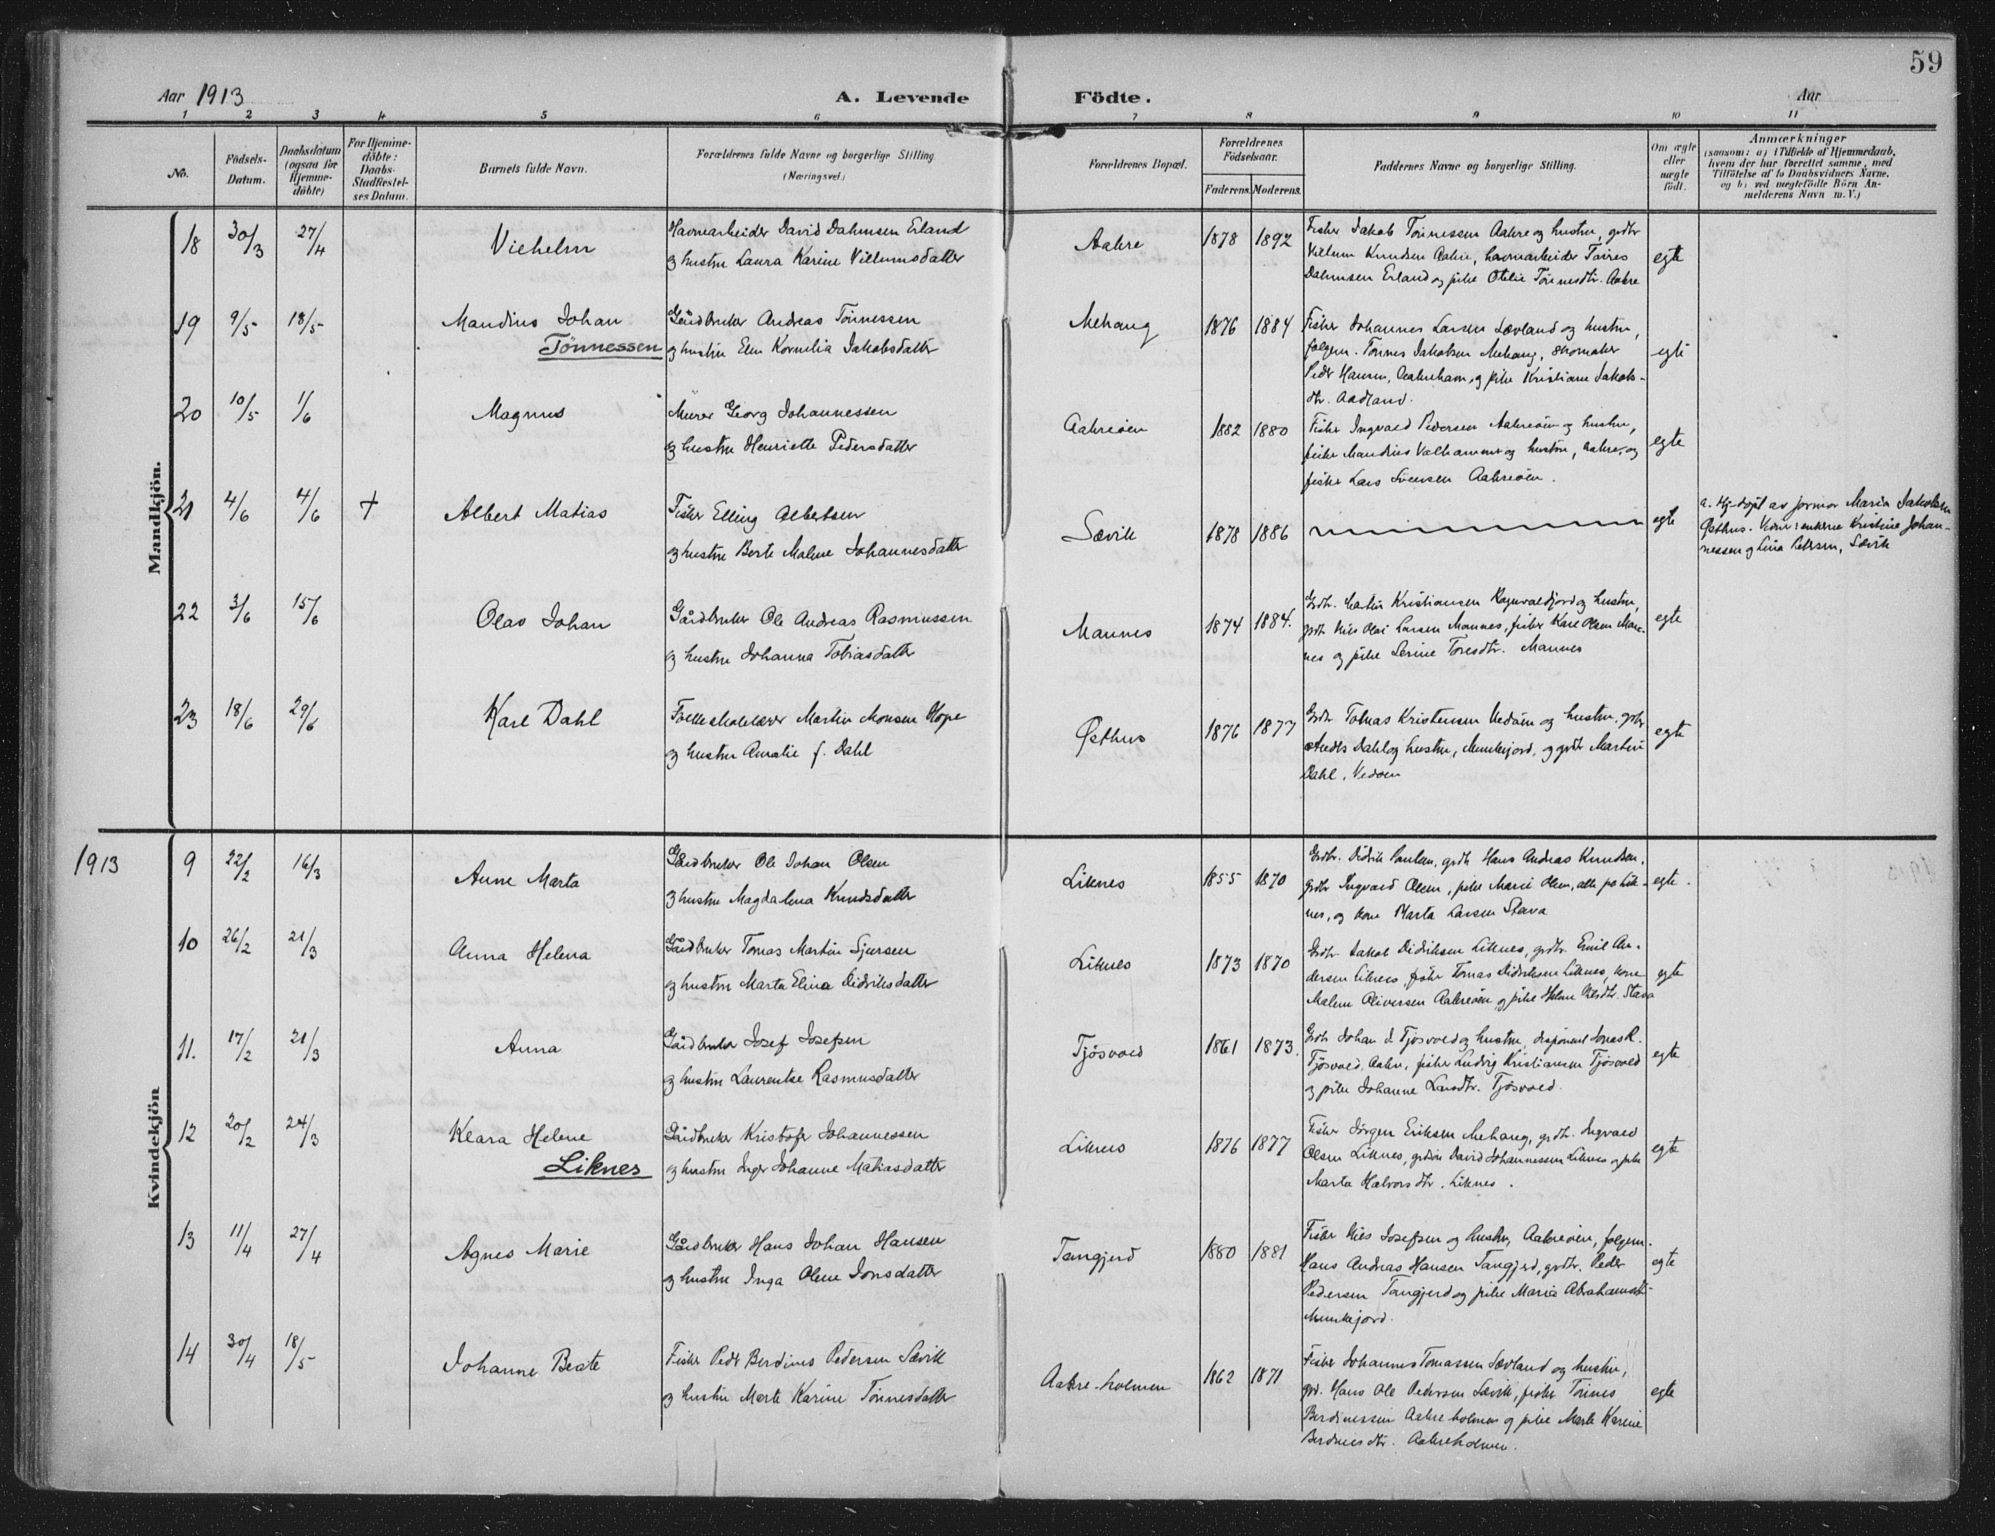 59
Aar 1913
A. Levende
Födte.
Aar
1 2 3 4 5 6 7 8 9 10 11
No.
Födsels-Datum.
Daabsdatum (ogsaa for Hjemmedöbte)
For Hjemmedöbte: Daabs-Stadfæstelses Datum.
Barnets fulde Navn.
Forældrenes fulde Navne og borgerlige Stilling (Næringsvei.)
Forældrenes Bopæl.
Forældrenes Födselsaar.
Faderens. Moderens.
Faddernes Navne og borgerlige Stilling.
Om ægte eller uægte födt.
Anmærkninger
(saasom: a) i Tilfælde af Hjemmedaab, hvem der har forrettet samme, med Tilföielse af to Daabsvidners Navne, og b) ved uægtefödte Börn Anmelderens Navn m.V.)
Mandkjön.
18 30/3 27/4 Vilhelm
Havnearbeider David Dahmsen Erland
og hustru Laura Karine Villumsdatter
Aakre 1878 1892
Fisker Jakob Tönnessen Aakre og hustru, grdbr
Villum Knudsen Aakre, havnearbeider Tönnes
Dahmsen Erland og pike Otilie Tönnesdtr. Aakre
egte
19 9/5 18/5 Mandius Johan
Tönnessen
Gårdbruker Andreas Tönnessen
og hustru Elen Kornelia Jakobsdatter
Mehaug 1876 1884
Fisker Johannes Larsen Sævland og hustru,
folgem. Tönnes Jakobsen Mehaug, skomaker
Peder Hansen, Aakrehavn, og pike Kristiane Jakobs-
dtr. Aadland.
egte
20 10/5 1/6 Magnus
Murer Georg Johannessen
og hustru Henriette Pedersdatter
Aakreöen 1882 1880
Fisker Ingvald Pedersen Aakreöen og hustru,
fisker Mandius Valhammer og hustru, Aakre, og
fisker Lars Svensen Aakreöen.
egte
21 4/6 4/6 + Albert Matias
Fisker Elling Albertsen
og hustru Berte Malene Johannesdatter
Sævik 1878 1886
egte
a. Hj.döpt av jormor Maria Jakobsen
Østhus. Vidner: enkerne Kristine Johan-
nessen og Lina Petersen, Sævik
22 3/6 15/6 Olav Johan
Gårdbruker Ole Andreas Rasmussen
og hustru Johanna Tobiasdatter
Mannes 1874 1884.
Grdbr. Martin Kristiansen og hustru,
grdbr Nils Olai Larsen Mannes, fisker Karl Olsen Man-
nes og pike Serine Toresdtr. Mannes
egte
23 18/6 29/6 Karl Dahl
Folkeskolelærer Martin Monsen Hope
og hustru Amalie f. Dahl
Østhus 1876 1877
Grdbr Tomas Kristensen Vedöen og hustru, grdbr
Dahl og hustru, Munkejord, og grdbr Martin
Dahl, Vedöen
egte
1913
Kvindekjön
9 22/2 16/3 Anne Marta
Gårdbruker Ole Johan Olsen
og hustru Magdalena Knudsdatter
Liknes 1855 1870
Grdbr. Didrik Paulsen, grdbr Hans Andreas Knudsen,
grdbr Ingvald Olsen, pike Marie Olsen, alle på Lik-
nes, og kone Marta Larsen Stava
egte.
10 26/2 21/3 Anna Helena
Gårdbruker Tomas Martin Sjursen
og hustru Marta Elina Didriksdatter
Liknes 1873 1870
Grdbr Jakob Didriksen Liknes, grdbr. Emil An-
dersen Liknes, fisker Tomas Didriksen Liknes, kone
Malene Oliversen Aakreöen, og pike Helene Nilsdtr. Stava
egte
11. 17/2 21/3 Anna
Gårdbruker Josef Josefsen
og hustru Laurentse Rasmusdatter
Tjösvold 1861 1873.
Grdbr Johan J. Tjösvold og hustru, disponent Jonas R.
Tjösvold, Aakre, fisker Ludvig Kristiansen Tjösvold
og pike Johanne Larsdtr. Tjösvold.
egte
12 20/2 24/3 Klara Helene
Liknes
Gårdbruker Kristofer Johannessen
og hustru Inger Johanne Matiasdatter
Liknes 1876 1877
Fisker Jörgen Eriksen Mehaug, grdbr. Ingvald
Olsen Liknes, David Johannessen Liknes og pike
Marta Halvorsdtr. Liknes.
egte
13 11/4 27/4 Agnes Marie
Gårdbruker Hans Johan Hansen
og hustru Inga Olene Jonsdatter
Tangjerd 1880 1881
Fisker Nils Josefsen og hustru, Aakreöen, folgem.
Hans Andreas Hansen Tangjerd, grdbr. Peder
Pedersen Tangjerd og pike Maria Abrahamsdtr
Munkejord.
egte
14 30/4 18/5 Johanne Beate
Fisker Peder Berdines Pedersen Sævik
og hustru Marte Karine Tönnesdatter
Aakre-holmen 1862 1871
Fisker Johannes Tomassen Sævland og hustru,
grd. Hans Ole Pedersen Sævik, fisker Tönnes
Berdinessen Aakreholmen og pike Marte Karine
Berdinesdtr. Aakreholmen.
egte